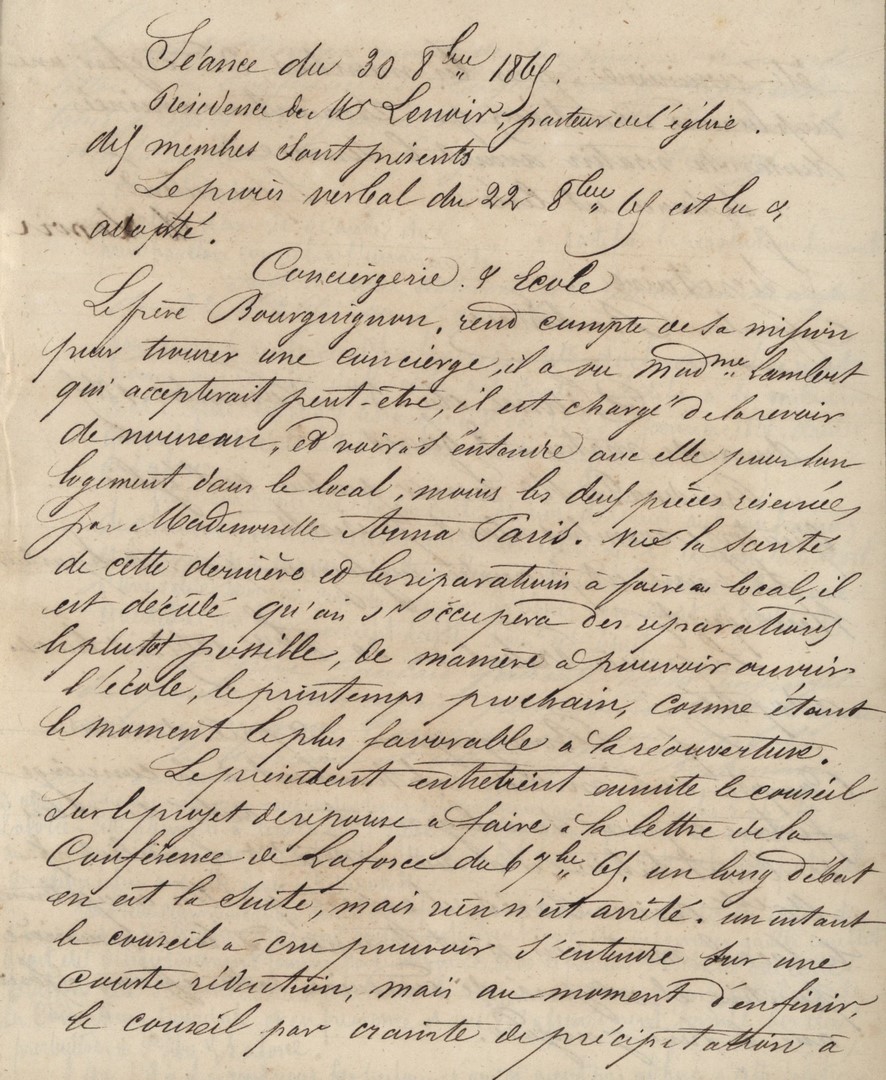 Séance du 30 8bre 1865.
Présidence de Mr Lenoir, pasteur de l'église.
dix membres sont présents
Le procès verbal du 22 8bre 65 est lu &
adopté.
Conciergerie. & Ecole
Le frère Bourguignon, rend compte de sa mission
pour trouver une concierge, il a vu Madme Lambert
qui accepterait peut-etre, il est chargé de la revoir
de nouveau, et voir à s'entendre avec elle pour son
logement dans le local, moins les deux pièces réservées
par Mademoiselle Anna Paris. Vu la santé
de cette dernière et les réparations à faire au local, il
est décidé qu'on s'occupera des réparations
le plutot possible, de manière à pouvoir ouvrir
l'école, le printemps prochain, comme étant
le moment le plus favorable à la réouverture.
Le président entretient ensuite le conseil
sur le projet de réponse à faire à la lettre de la
Conférence de Laforce du 6 7bre 65. un long débat
en est la suite, mais rien n'est arrêté. un instant
le conseil a cru pouvoir s'entendre sur une
courte rédaction, mais au moment d'en finir,
le conseil par crainte de précipitation à